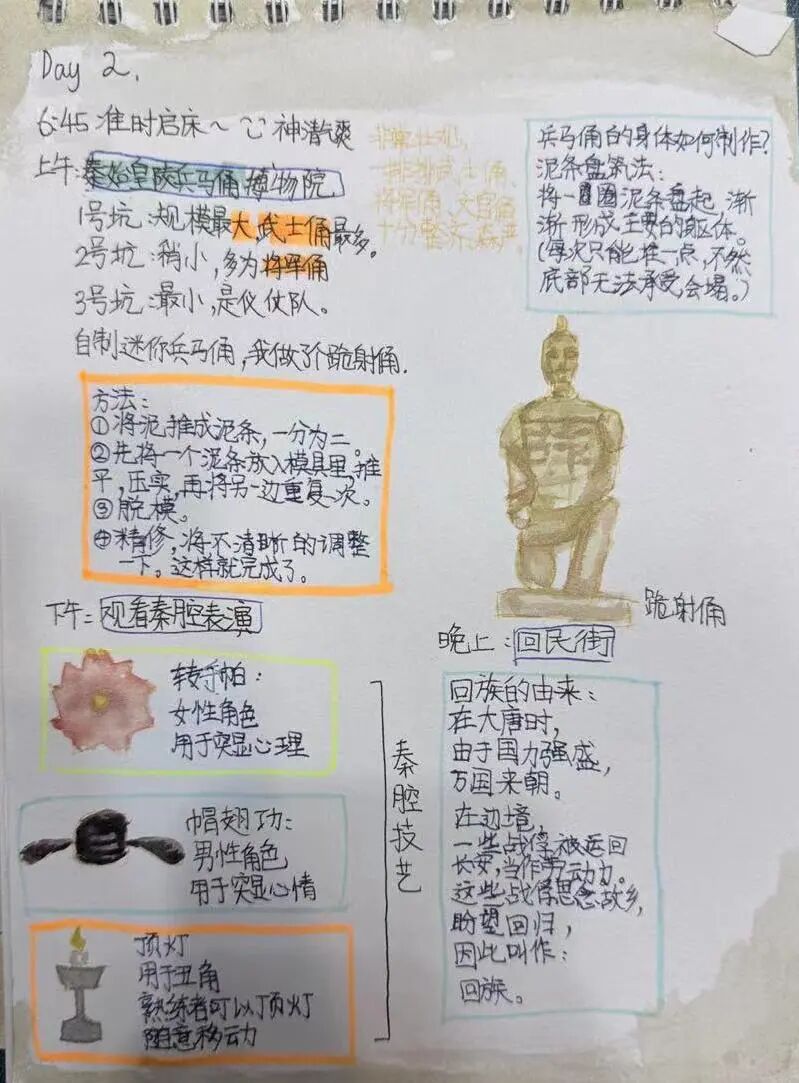 Day 2.
6:45 准时启床~ 神清气爽
上午:秦始皇陵兵马俑博物院
1号坑:规模最大,武士俑最多。
2号坑:稍小,多为将军俑
3号坑:最小,是仪仗队。
自制迷你兵马俑,我做了个跪射俑.
非常壮观,
一排排武士俑、
将军俑、文官俑
十分整齐,森严。
兵马俑的身体如何制作?
泥条盘筑法:
将一圈圈泥条盘起,渐
渐形成主要的躯体。
(每次只能堆一点,不然
底部无法承受会塌。)
方法:
①将泥推成泥条,一分为二。
②先将一个泥条放入模具里,推
平,压实,再将另一边重复一次。
③脱模。
④精修,将不清晰的调整
一下。这样就完成了。
跪射俑
下午:观看秦腔表演
转手帕:
女性角色
用于突显心理
帽翅功:
男性角色
用于突显心情
顶灯
用于丑角
熟练者可以顶灯
随意移动
秦腔技艺
晚上:回民街
回族的由来:
在大唐时,
由于国力强盛,
万国来朝。
在边境,
一些战俘被运回
长安,当作劳动力。
这些战俘思念故乡,
盼望回归,
因此叫作:
回族。